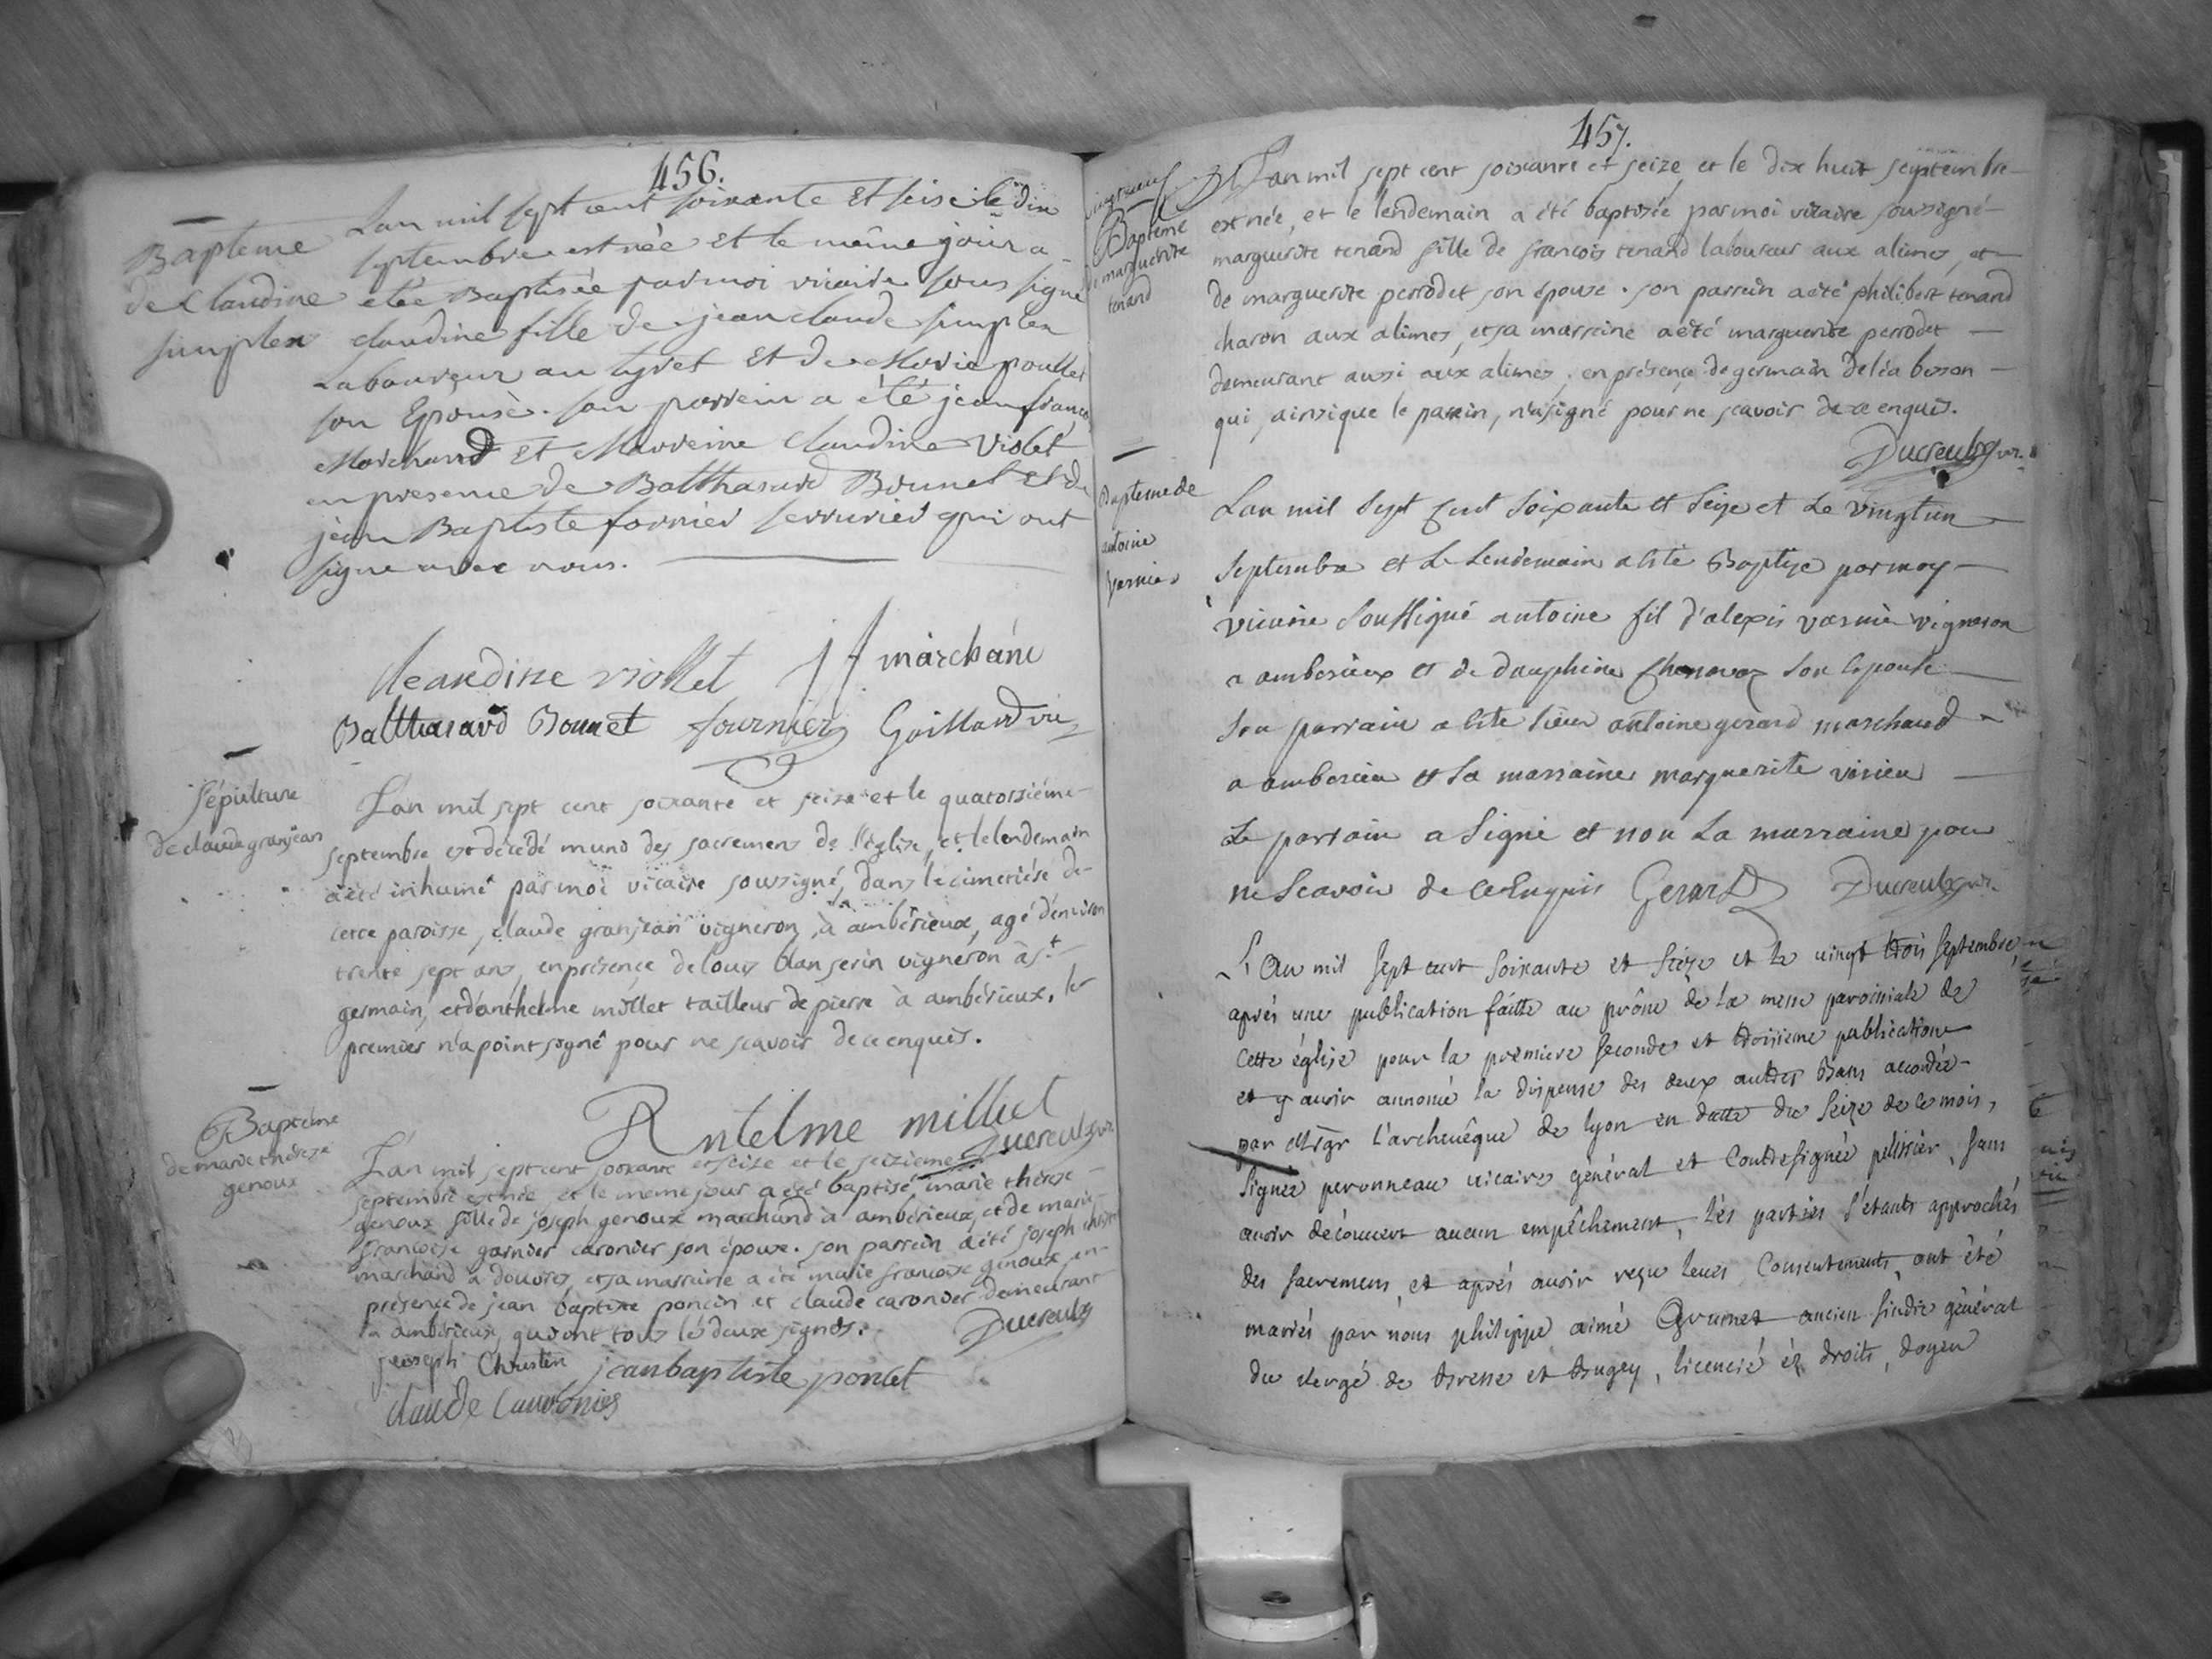 456.
Bapteme
de Claudine
simplex
Lan mil sept cent soixante Et seise le dix
septembre est née et le même jour a
etée Baptisée par moi vicaire sous signé
claudine fille de jean claude simplex
Laboureur au tyret Et de Marie poullet
son Epouse. son parrein a été jean françois
Marchand Et Marreine claudine Violet
en presence de Balthasard Bonnet Et de
jean Baptiste fornier serrurier qui ont
signe avec nous.
cleaudine viollet jf marchand
Balthasard Bonnet fournier Gaillard vic
sépulture
de claude granjean
L'an mil sept cent soixante et seize et le quatorsiéme
septembre est décédé muni des sacremens de l'église, et le lendemain
a été inhumé par moi vicaire soussigné, dans le cimetière de
cette paroisse, claude granjean vigneron à ambérieux, agé d'environ
trente sept ans, en présence de louis blanserin vigneron à st
germain, et d'anthelme millet tailleur de pierre à ambérieux, le
premier n'a point signé pour ne scavoir de ce enquis.
Antelme milliet
Ducreulx vic.
Baptême
de marie thérèze
genoux
L'an mil sept cent soixante et seize et le seizieme
septembre est née et le meme jour a été baptisé marie thérèse
genoux fille de joseph genoux marchand à ambérieux, et de marie
françoise garnier caronier son épouse. son parrein a été joseph christin
marchand à douvres, et sa marraine a été marie francoise genoux, en
présence de jean baptiste poncin et claude caronier demeurant
à ambérieux, qui ont tous les deux signés.
Ducreulx
joseph Christin jean baptiste poncet
claude Cauronier
457.
vingt neuf
Baptême
de marguerite
tenand
L'an mil sept cent soixante et seize et le dix huit septembre
est née, et le lendemain a été baptisée par moi vicaire soussigné
marguerite tenand fille de françois tenand laboureur aux alimes, et
de marguerite perrodet son épouse. son parrein a été philibert tenand
charon aux alimes, et sa marreine a été marguerite perrodet
demeurant aussi aux alimes, en présence de germain deléa besson
qui, ainsi que le parrein, n'a signé pour ne scavoir de ce enquis.
Ducreulx vic.
Bapteme de
antoine
varnier
Lan mil sept Cent soixante et seize et Le vingt un
septembre et Le Lendemain a été Baptizé par moy
vicaire soussigné antoine fil d'alexis varnier vigneron
a amberieux et de dauphine Chenavaz son epouse
son parrain a été sieur antoine gerard marchand
a amberieu et sa marraine marguerite vivieu
Le parrain a signé et non La marraine pour
ne scavoir de ce Enquis Gerard Ducreulx vic.
L'an mil sept cent soixante et seize et le vingt trois septembre
aprés une publication faitte au prône de la messe paroissiale de
cette église pour la premiere seconde et troisieme publication
et y avoir annoncé la dispense des deux autres Bans accordée
par Msgr L'archevêque de lyon en datte du seize de ce mois,
signée peronneau vicaire général et Contresignée pelissier, sans
avoir découvert aucun empêchement, les parties s'étants approchés
des sacremens, et aprés avoir reçu leurs Consentements, ont été
mariés par nous philippe aimé Grumet ancien sindic général
du clergé de Bresse et Bugey, licencié éz droits, doyen